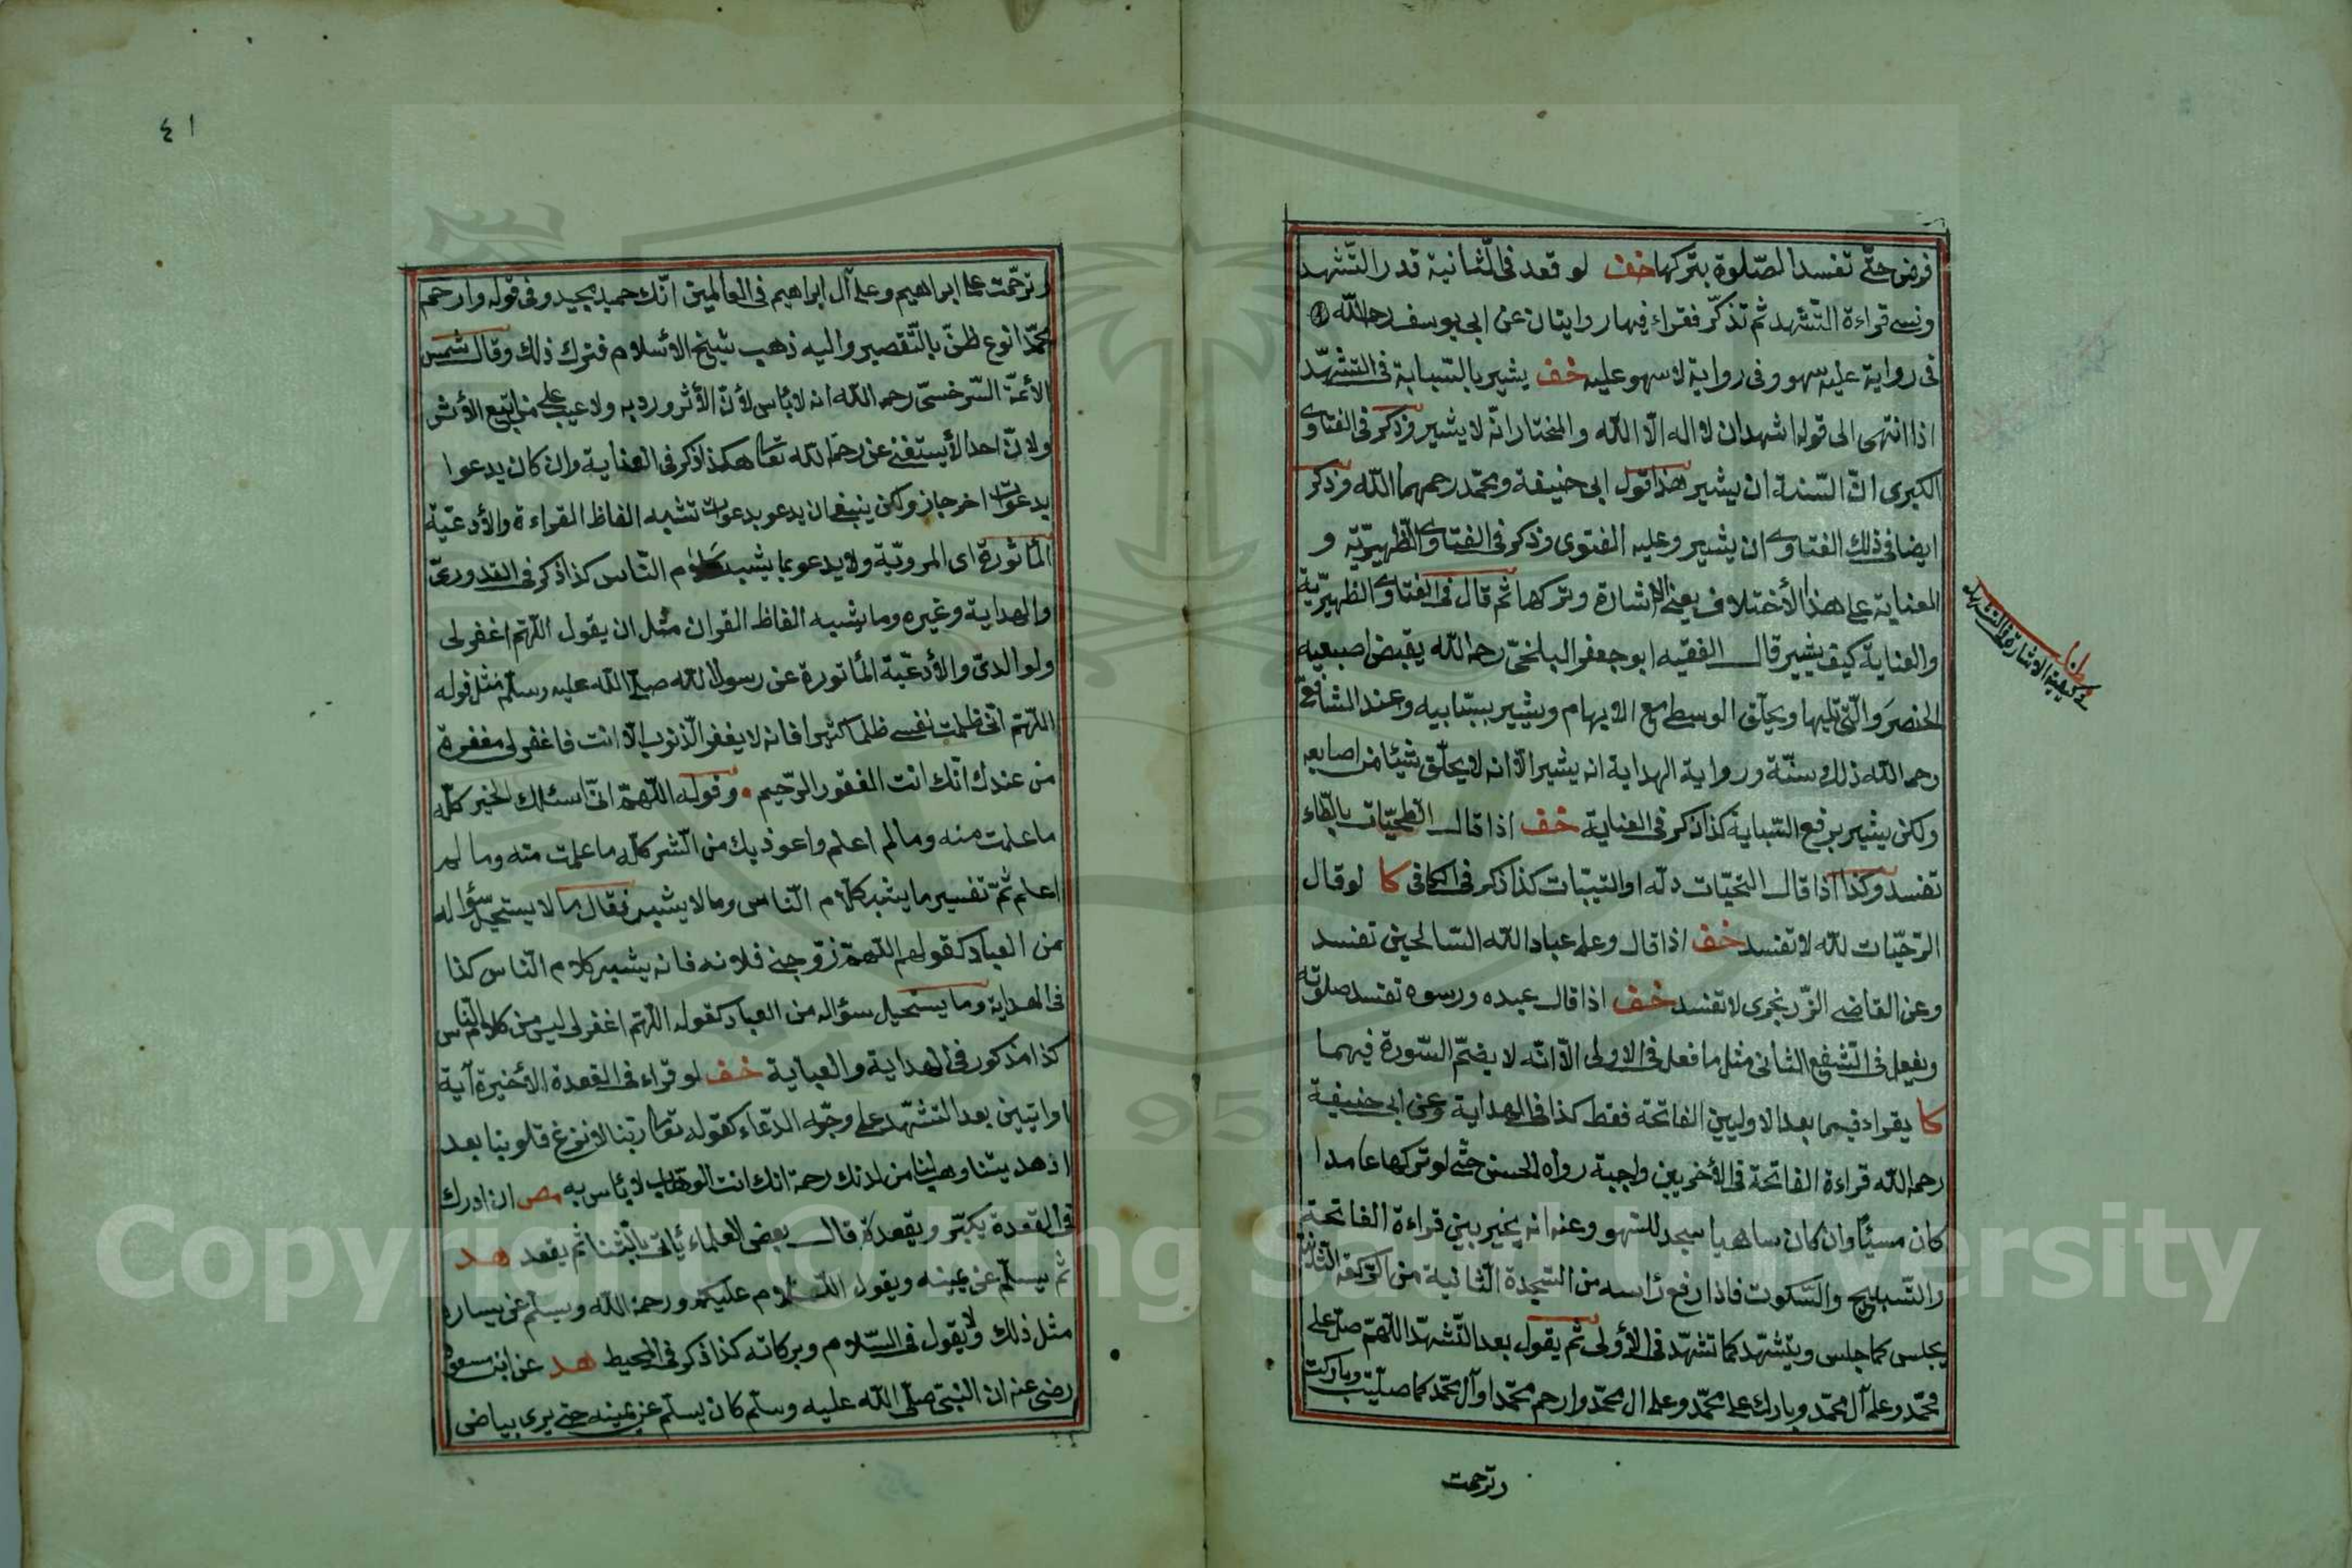 فرض حتّى تفسد الصّلوة بتركها خف لو قعد فى الثّانية قدر التّشهد
ونسى قراءة التّشهد ثم تذكّر فقراء فيها روايتان عن ابى يوسف رحمه الله
فى رواية عليه سهو وفى رواية لا سهو عليه خف يشير بالسّبابة فى التشهّد
اذا انتهى الى قوله اشهد ان لا اله الّا الله والمختار انّه لا يشير وذكر فى الفتاوى
الكبرى انّ السّنة ان يشير هذا قول ابى حنيفة ومحمّد رحمهما الله وذكر
ايضا فى ذلك الفتاوى ان يشير وعليه الفتوى وذكر فى الفتاوى الظّهيريّة و
العناية على هذا الأختلاف يعنى الاشارة وتركها ثم قال فى الفتاوى الظهيريّة
والعناية كيف يشير قال الفقيه ابو جعفر البلخىّ رحمه الله يقبض اصبعيه
الخنصر والّتى تليها ويحلّق الوسطى مع الابهام ويشير بسبّابيه وعند الشافعىّ
رحمه الله ذلك سنّة ورواية الهداية انه يشير الّا انه لا يحلّق شيئا من اصابعه
ولكن يشير برفع السّبابة كذا ذكر فى العناية خف اذا قال الطحيّات بالطّاء
تفسد وكذا اذا قال التحيّات دلّه او التيبّات كذا ذكر فى الكافى كا لو قال
الترحيّات لله لا تفسد خف اذا قال وعلى عباد الله السّالحين تفسد
وعن القاضى الزّرنجرى لا تفسد خف اذا قال عبده ورسوه تفسد صلوته
ويفعل فى الشّفيع الثّانى مثل ما فعل فى الاولى الّا انّه لا يضمّ السّورة فيهما
كا يقراء فيما بعد الاوليين الفاتحة فقط كذا فى الهداية وعن ابى حنيفة
رحمه الله قراءة الفاتحة فى الأخريين واجبة رواه الحسن حتّى لو تركها عامدا
كان مسيئًا وان كان ساهيا سجد للسّهو وعنه انه يخير بين قراءة الفاتحة
والتّسبيح والسّكوت فاذا رفع رأسه من السّجدة الثّانية من الرّكعة الثّانية
يجلس كما جلس ويتشهّد كما تشهّد فى الأولى ثم يقول بعد التّشهّد اللّهمّ صلّ على
محمّد وعلى آل محمّد وبارك على محمّد وعلى ال محمّد وارحم محمّدا وآل محمّد كما صلّيت وباركت
وترحمت
مطلب
فى كيفية الاشارة فى التشهد
٤١
وترحّمت على ابراهيم وعلى آل ابراهيم فى العالمين انّك حميد مجيد وفى قوله وارحم
محمّدا نوع ظنّ بالتّقصير واليه ذهب شيخ الأسلام فترك ذلك وقال شمس
الأئمّة السّرخسىّ رحمه الله انه لا بأس لأنّ الأثر ورد به ولا عيب على من اتبع الأثر
ولانّ احدا لأ يستغنى عن رحمة الله تعالى هكذا ذكر فى العناية وان كان يدعوا
بدعوات اخر جاز ولكن ينبغى ان يدعو بدعوات تشبه الفاظ القراءة والأدعيّة
المأثورة اى المرويّة ولا يدعو بما يشبه كلام النّاس كذا ذكر فى القدورىّ
والهداية وغيره وما يشبه الفاظ القران مثل ان يقول اللّهمّ اغفر لى
ولوالدىّ والأدعيّة المأثورة عن رسول الله صلّى الله عليه وسلّم مثل قوله
اللّهمّ انّى ظلمت نفسى ظلما كثيرا فانه لا يغفر الّذنوب الّا انت فاغفر لى مغفرة
من عندك انّك انت الغفور الرّحيم وقوله اللّهمّ انّى اسئلك الخير كلّه
ما علمت منه وما لم اعلم واعوذ بك من الشر كلّه ما علمت منه وما لم
اعلم ثمّ تفسير ما يشبه كلام النّاس وما لا يشبه فقال ما لا يستحيل سؤاله
من العباد كقولهم اللّهمّ زوّجنى فلانه فانه يشبه كلام النّاس كذا
فى الهداية وما يستحيل سؤاله من العباد كقوله اللّهمّ اغفر لى ليس من كلام النّاس
كذا مذكور فى الهداية والعناية خف لو قراء فى القعدة الأخيرة آية
او اتيين بعد التشهّد على وجّه الدّعاء كقوله تعالى ربّنا لا تزغ قلوبنا بعد
اذ هديتنا وهب لنا من لدنك رحمة انك انت الوهّاب لا بأس به مص ان ادرك
فى القعدة يكبّر ويقعدة قال بعض العلماء يأتى بالثّنا ثم يقعد هد
ثم يسلّم عن يمينه ويقول السّلام عليكم ورحمة الله ويسلّم عن يساره
مثل ذلك ولا يقول فى السّلام وبركاته كذا ذكر فى المحيط هد عن ابن مسعود
رضى عنه ان النّبىّ صلّى الله عليه وسلّم كان يسلّم عن يمينه حتى يرى بياض
Copyright © King Saud University